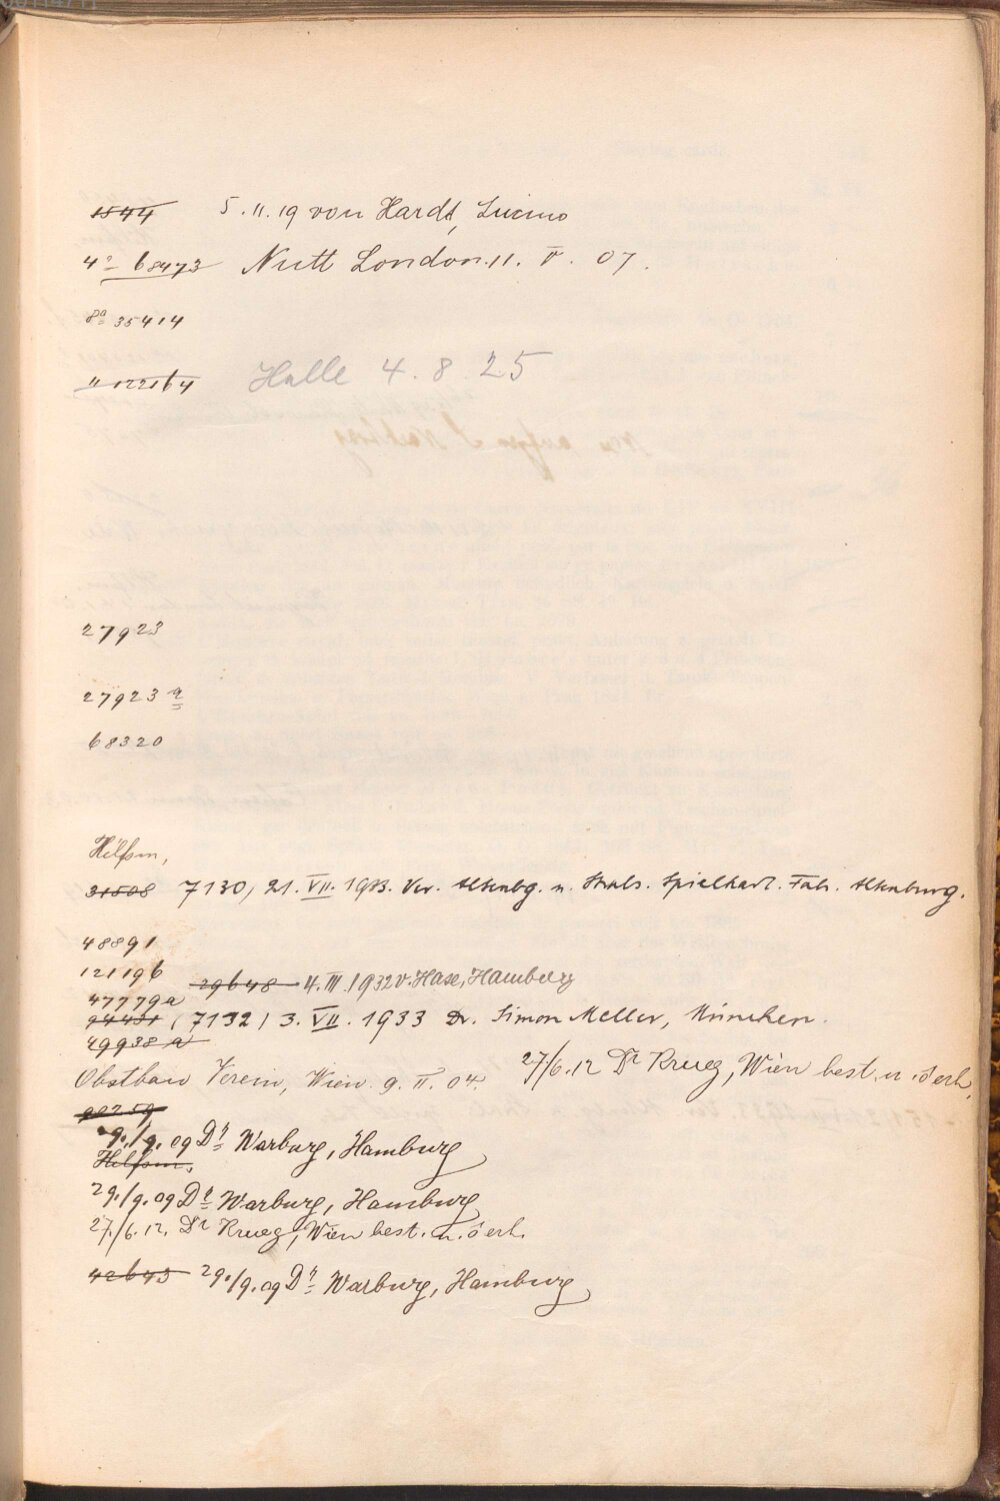 1544 5.11.19 von Hardt,
4º 68473 Nutt London 11. V. 07.
8º 35414
11122164 Halle 4.8.25
27923
27923 a
68320
Hilfsm,
31508 7130, 21. VII. 1933. Ver. Altenbg. u. Strals. Spielkart. Fab. Altenburg.
48891
121196
29648 4. III. 1932 v. Hase, Hamburg
47779a
94431 (7132) 3. VII. 1933 Dr. Simon Meller, München.
49938 a
27/6.12 Dr Krueg, Wien best. u. ö erh.
Obstbau Verein, Wien. 9. II. 04.
90259
9./9.09 Dr Warburg, Hamburg
Hilfsm.
29./9.09 Dr Warburg, Hamburg
27./6.12. Dr Krueg, Wien best. u. ö erh.
42643 29./9.09 Dr Warburg, Hamburg